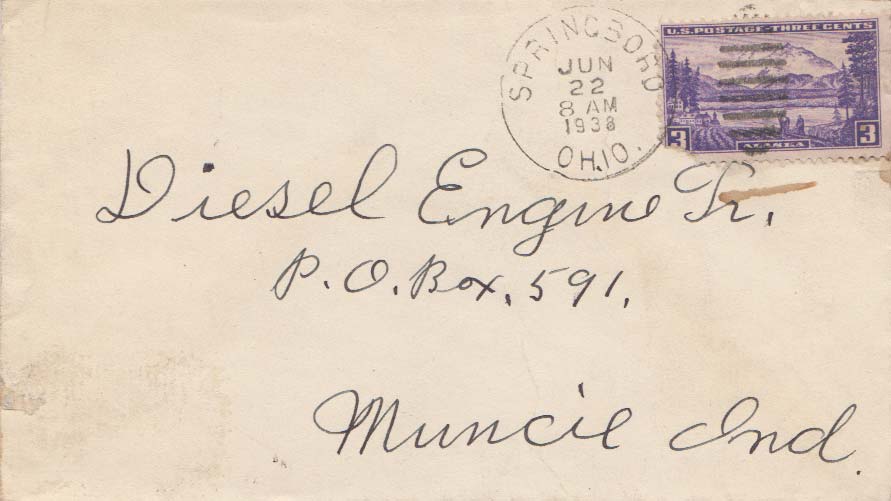 SPRINGBORO
JUN
22
8 AM
1938
OHIO.
U.S. POSTAGE-THREE CENTS
3 ALASKA 3
Diesel Engine Tr.
P.O. Box. 591.
Muncie Ind.